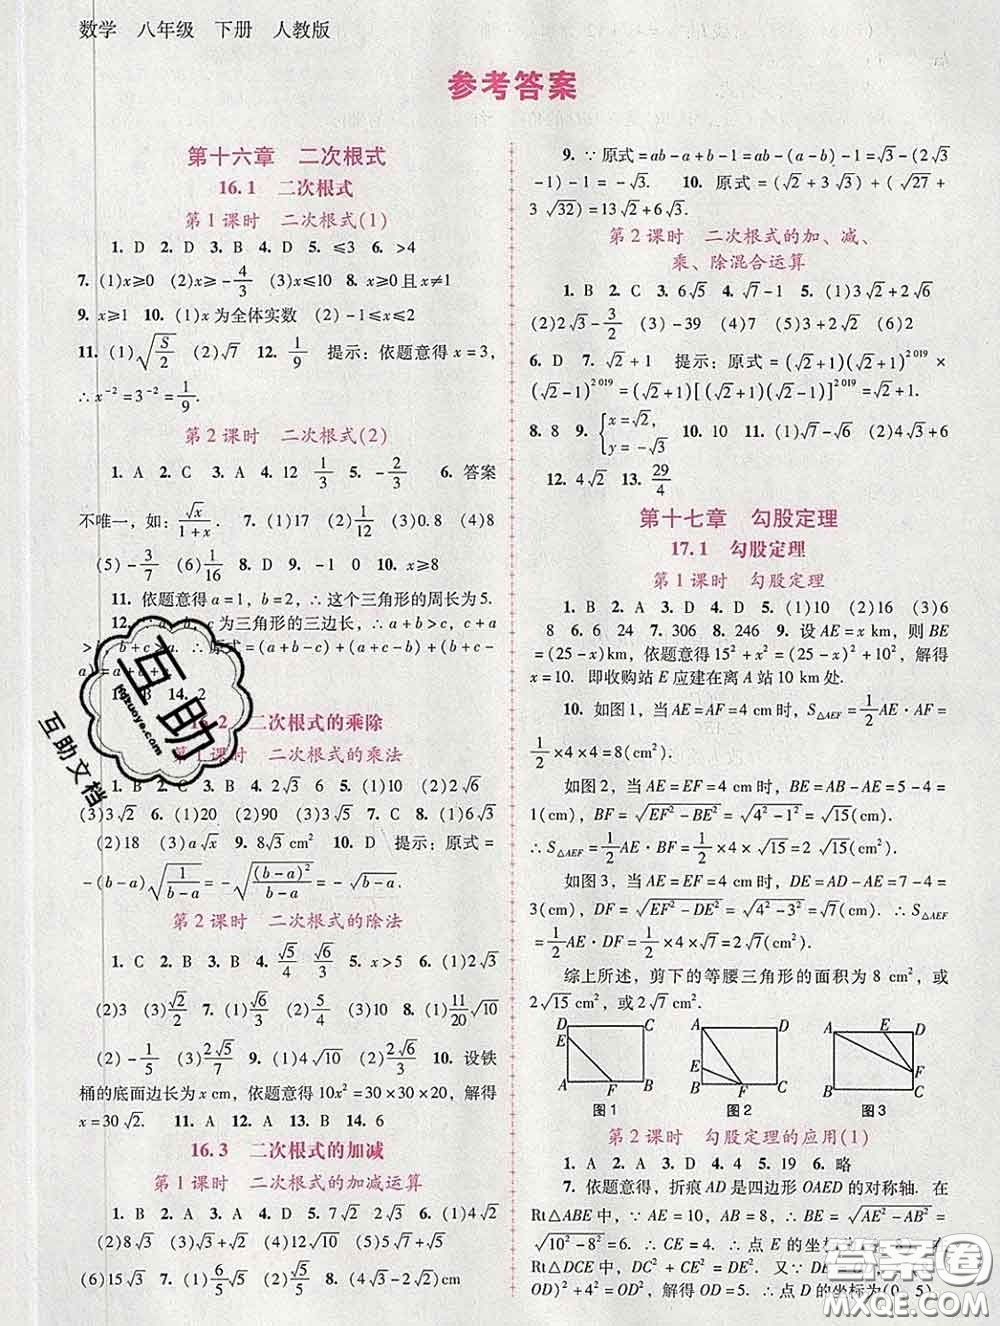 数学 八年级 下册 人教版
参考答案
第十六章 二次根式
16.1 二次根式
第1课时 二次根式(1)
1. D 2. D 3. B 4. D 5. ≤3 6. >4
7. (1)x≥0 (2)x≥-4/3 (3)x≤10 8. x≥0且x≠1
9. x≥1 10. (1)x为全体实数 (2)-1≤x≤2
11. (1)√(S/2) (2)√7 12. 1/9 提示:依题意得x=3,
∴x⁻²=3⁻²=1/9.
第2课时 二次根式(2)
1. A 2. C 3. A 4. 12 1/3 5. -2/3 6. 答案
不唯一,如:√x/(1+x). 7. (1)17 (2)1/12 (3)0.8 (4)8
(5)-3/7 (6)1/16 8. D 9. -1 0 10. x≥8
11. 依题意得a=1,b=2,∴这个三角形的周长为5.
12. ∵a,b,c为三角形的三边长,∴a+b>c,c+a
>b,b+c>a. ∴原式=(a+b-c)+(a+b+c-
a)=a+a+
13. B 14. 2
16.2 二次根式的乘除
第1课时 二次根式的乘法
1. B 2. C 3. B 4. 2√3 6 5. (1)10 (2)2
(3)3√2 6. (1)20 (2)90 (3)√3 7. C 8. (1)√6
(2)18 (3)a√x 9. 8√3 cm² 10. D 提示:原式=
-(b-a)√(1/(b-a))=-√((b-a)²/(b-a))=-√(b-a).
第2课时 二次根式的除法
1. C 2. B 3. A 4. √5/4 √6/3 5. x>5 6. (1)2√3
(2)3 (3)√2/2 7. (1)√6/3 (2)5 8. (1)11/20√10
(2)-1/5 (3)2√5/7 9. (1)4√10 (2)2√6/3 10. 设铁
桶的底面边长为x cm,依题意得10x²=30×30×20,解得
x=30√2. 11. A 12. A 13. B 14. 6
16.3 二次根式的加减
第1课时 二次根式的加减运算
1. B 2. A 3. A 4. D 5. 7√2 2√3 6. (1)4√2
(2)8√3 (3)√2+√3 (4)2√3 (5)5√7+√5
(6)15√3 7. (1)6/5√5 (2)5√5 8. (4√3+4√2)cm
9. ∵原式=ab-a+b-1=ab-(a-b)-1=√3-(2√3
-1)-1=-√3. 10. 原式=(√2+3√3)+(√27+
3√32)=13√2+6√3.
第2课时 二次根式的加、减、
乘、除混合运算
1. B 2. C 3. 6√5 4. √7-1 5. (1)3√2+2√6
(2)2√3-3/2 (3)-39 (4)7 (5)3+2√2 (6)2
6. D 7. √2+1 提示:原式=(√2+1)(√2+1)²⁰¹⁹×
(√2-1)²⁰¹⁹=(√2+1)[(√2+1)(√2-1)]²⁰¹⁹=√2+1.
8. 8 9. {x=√2, y=-√3 10. 10 11. (1)√7-√6 (2)4√3+6
12. 4√2 13. 29/4
第十七章 勾股定理
17.1 勾股定理
第1课时 勾股定理
1. B 2. A 3. D 4. D 5. (1)10 (2)16 (3)6
8 6. 6 24 7. 306 8. 246 9. 设AE=x km,则BE
=(25-x)km,依题意得15²+x²=(25-x)²+10²,解得
x=10. 即收购站E应建在离A站10 km处.
10. 如图1,当AE=AF=4 cm时,S△AEF=1/2AE·AF=
1/2×4×4=8(cm²).
如图2,当AE=EF=4 cm时,BE=AB-AE=5-4
=1(cm),BF=√(EF²-BE²)=√(4²-1²)=√15(cm).
∴S△AEF=1/2AE·BF=1/2×4×√15=2√15(cm²).
如图3,当AE=EF=4 cm时,DE=AD-AE=7-4=
3(cm),DF=√(EF²-DE²)=√(4²-3²)=√7(cm). ∴S△AEF
=1/2AE·DF=1/2×4×√7=2√7(cm²).
综上所述,剪下的等腰三角形的面积为8 cm²,或
2√15 cm²,或2√7 cm².
D C A D A E D
E E F
A F B B F C B C
图1 图2 图3
第2课时 勾股定理的应用(1)
1. A 2. A 3. D 4. 4 5. 19 6. 略
7. 依题意得,折痕AD是四边形OAED的对称轴. 在
Rt△ABE中,∵AE=10,AB=8,∴BE=√(AE²-AB²)=
√(10²-8²)=6. ∴CE=4. ∴点E的坐标
Rt△DCE中,DC²+CE²=DE². 又∵DE=OD
OD)²+4²=OD²,解得OD=5. ∴点D的坐标为(0,5).
互助
hgzuoye.com
互助文档
答案圈
MXQE.COM